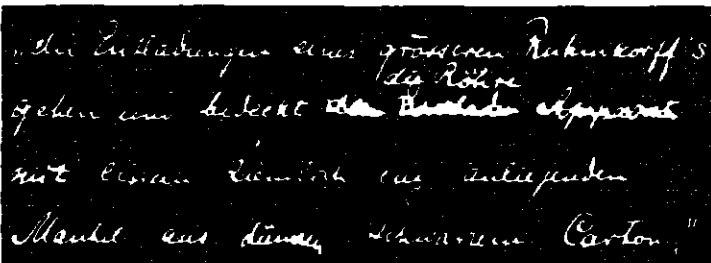 „die Entladungen eines grösseren Ruhmkorff's
die Röhre
gehen und bedeckt den Apparat
mit einem ziemlich eng anliegenden
Mantel aus dünnem, schwarzem Carton,"